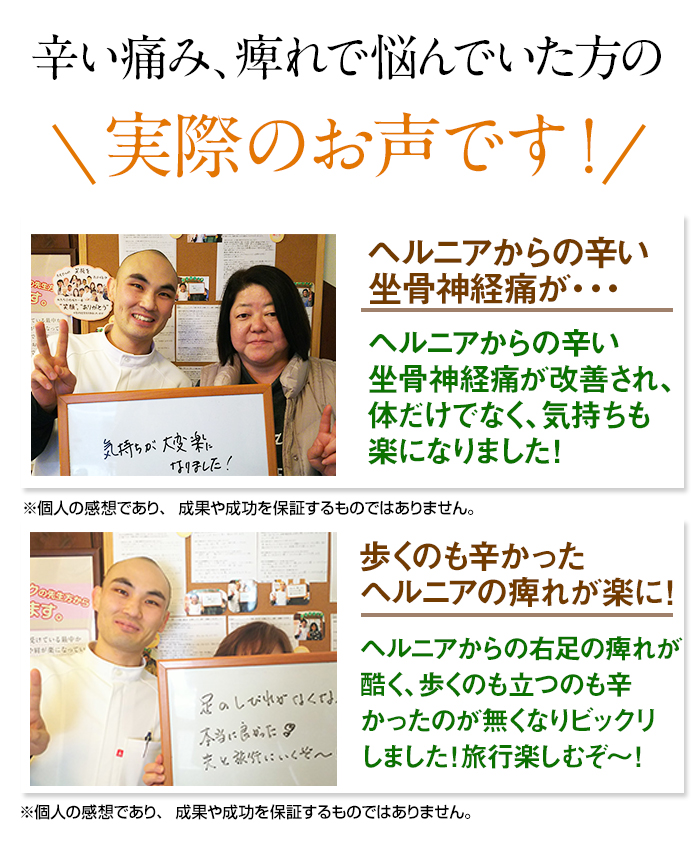 辛い痛み、痺れで悩んでいた方の
実際のお声です！
ヘルニアからの辛い
坐骨神経痛が・・・
ヘルニアからの辛い
坐骨神経痛が改善され、
体だけでなく、気持ちも
楽になりました！
気持ちが大変楽に
なりました！
※個人の感想であり、 成果や成功を保証するものではありません。
歩くのも辛かった
ヘルニアの痺れが楽に！
ヘルニアからの右足の痺れが
酷く、歩くのも立つのも辛
かったのが無くなりビックリ
しました！旅行楽しむぞ〜！
クの先生方から
ます。
足のしびれがなくな
本当に良かった
夫と旅行にいくぞ〜
※個人の感想であり、 成果や成功を保証するものではありません。